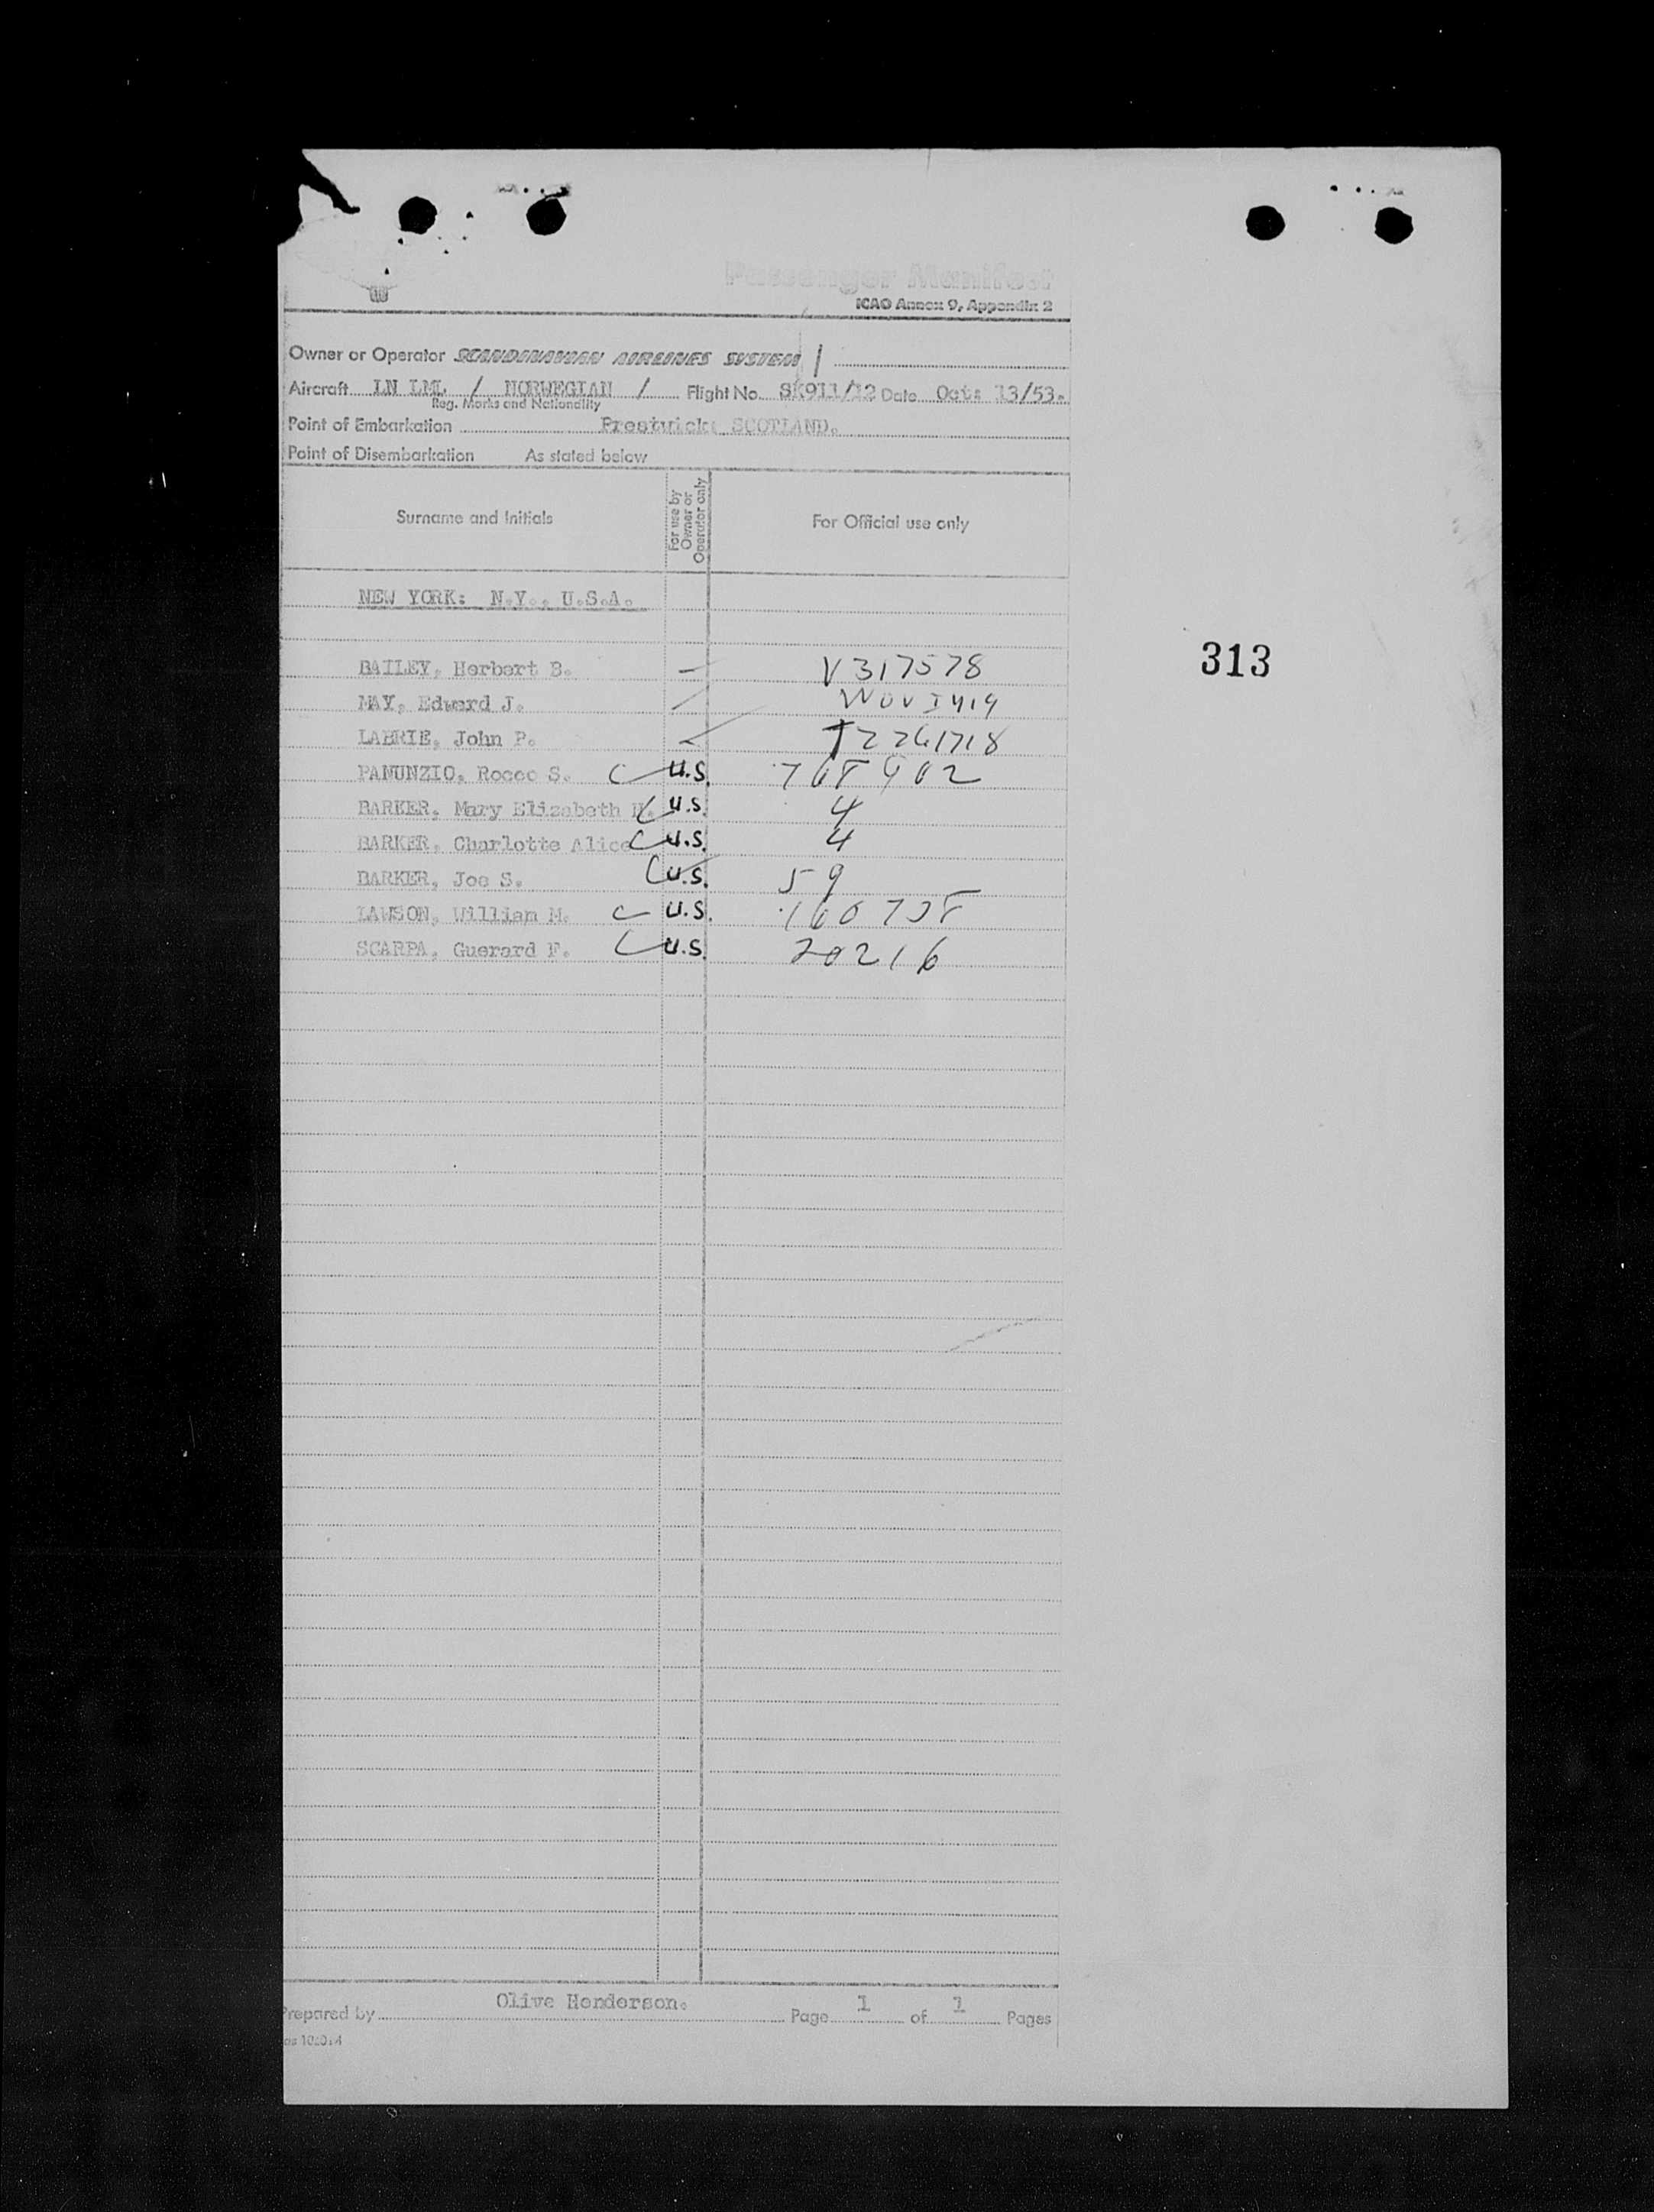 Passenger Manifest
ICAO Annex 9, Appendix 2
Owner or Operator SCANDINAVIAN AIRLINES SYSTEM /
Aircraft LN LML / NORWEGIAN / Flight No. SK911/12 Date Oct: 13/53.
Reg. Marks and Nationality
Point of Embarkation Prestwick: SCOTLAND.
Point of Disembarkation As stated below
Surname and Initials For use by Owner or Operator only For Official use only
NEW YORK: N.Y., U.S.A.
313
BAILEY, Herbert B. V317578
MAY, Edward J.
LABRIE, John P.
PANUNZIO, Rocco S. U.S.
BARKER, Mary Elizabeth H. U.S. 4
BARKER, Charlotte Alice U.S. 4
BARKER, Joe S. U.S. 59
LAWSON, William M. U.S.
SCARPA, Guerard F. U.S. 20216
Prepared by Olive Henderson. Page 1 of 1 Pages